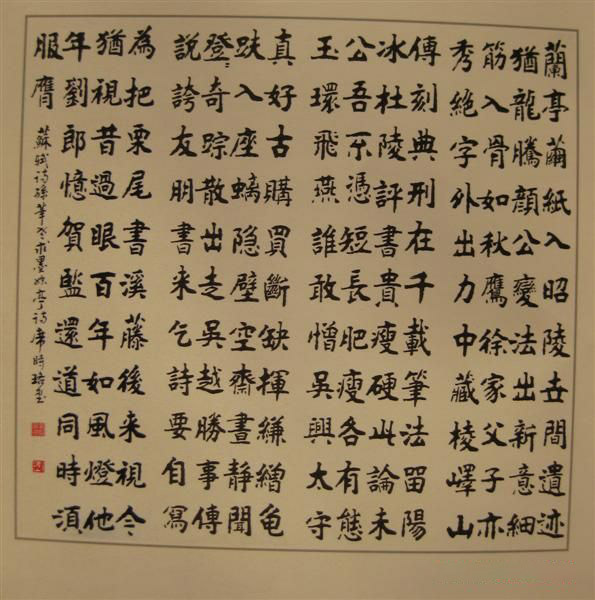 蘭亭繭紙入昭陵世間遺迹
猶龍騰顏公變法出新意細
筋入骨如秋鷹徐家父子亦
秀絕字外出力中藏棱嶧山
傳刻典刑在千載筆法留陽
冰杜陵評書貴瘦硬此論未
公吾不憑短長肥瘦各有態
玉環飛燕誰敢憎吳興太守
真好古購買斷缺揮縑繒龜
趺入座螭隐壁空齋晝靜聞
登〻奇踪散出走吳越勝事傳
說誇友朋書來乞詩要自寫
為把栗尾書溪藤後来視今
猶視昔過眼百年如風燈他
年劉郎憶賀監還道同時須
服膺
蘇軾詩孫莘老求墨妙亭詩 席時